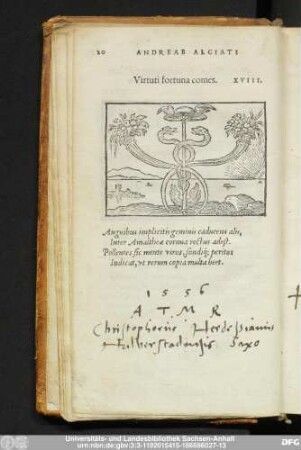 20 ANDREAE ALCIATI
Virtuti fortuna comes. XVIII.
Anguibus implicitis geminis caduceus alis,
Inter Amaltheæ cornua rectus adest.
Pollentes sic mente viros, fandiq; peritos
Indicat, vt rerum copia multa beet.
1556
A T M R
Christophorus
Halberstadensis Saxo
Universitäts- und Landesbibliothek Sachsen-Anhalt
urn:nbn:de:gbv:3:3-1192015415-186696027-13
DFG